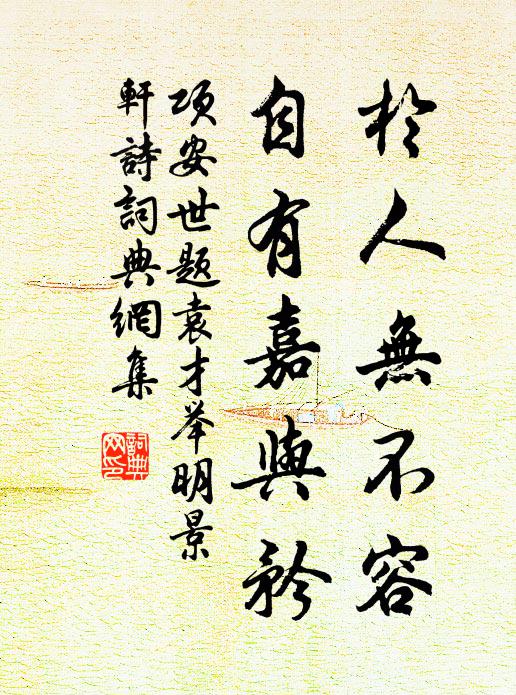 於人無不容
自有嘉與矜
项安世题袁才举明景
軒詩詞典網集
詞典
网印